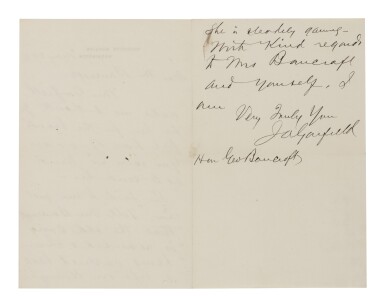 She is steadily gaining –
With Kind regards
to Mrs Bancroft
and yourself. I
am
Very Truly Yours
J A Garfield
Hon Geo Bancroft